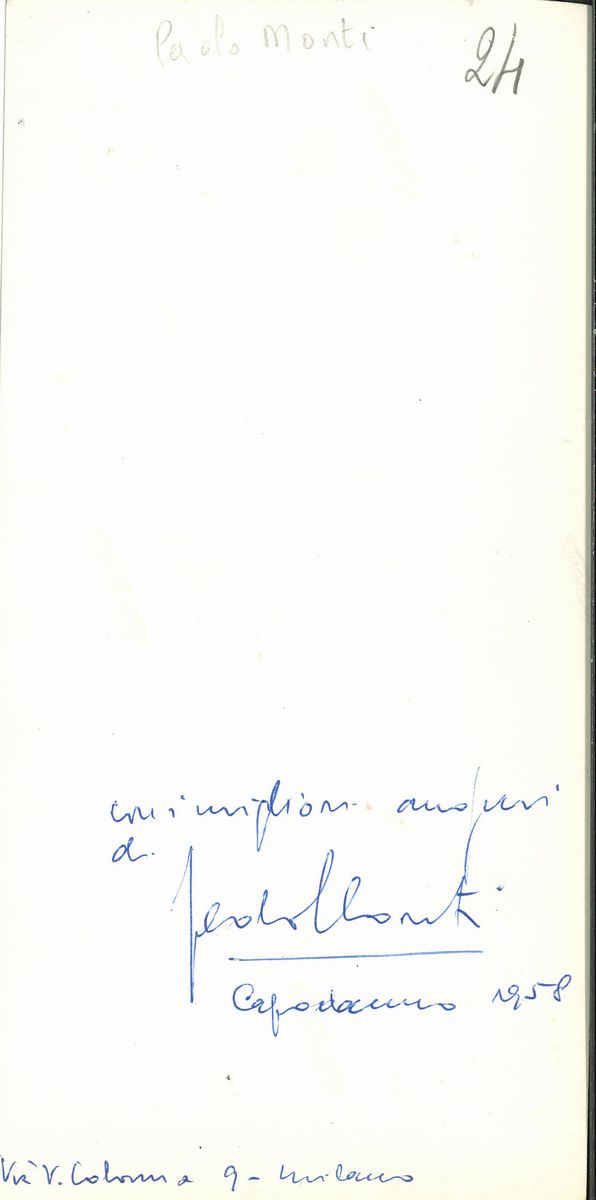 Paolo Monti 24
con i migliori auguri
di
Paolo Monti
Capodanno 1958
Via V. Colonna 9 - Milano